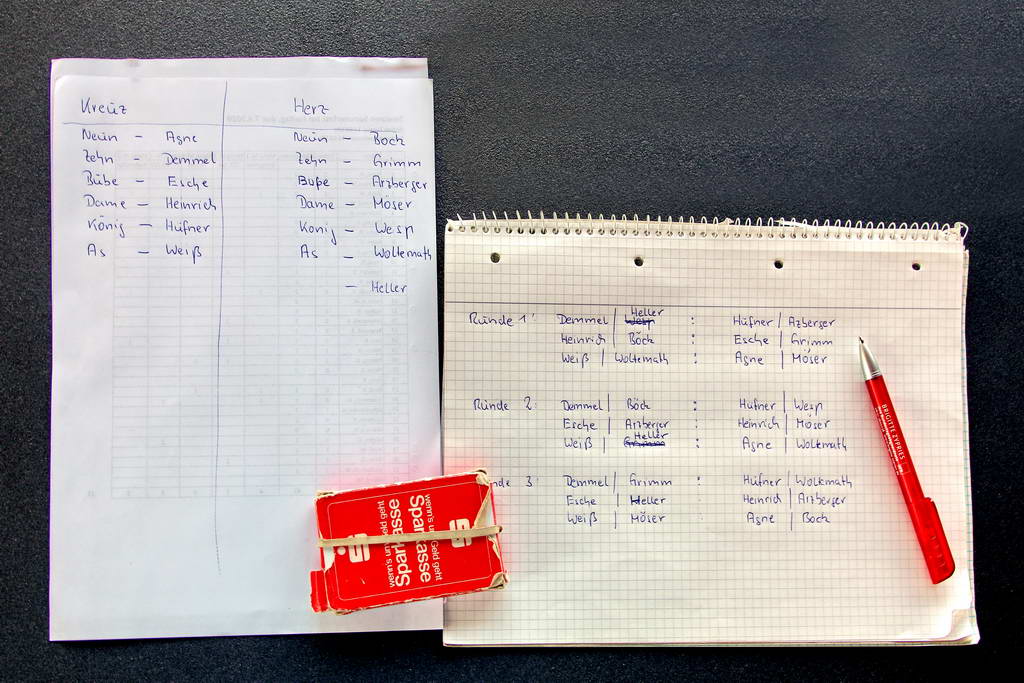 Kreuz Herz
Neun – Agne Neun – Bock
Zehn – Demmel Zehn – Grimm
Bube – Esche Bube – Arzberger
Dame – Heinrich Dame – Möser
König – Hüfner König – Wesp
As – Weiß As – Woltemath
– Heller
Heller
Runde 1: Demmel | Wesp : Hüfner | Azberger
Heinrich | Böck : Esche | Grimm
Weiß | Woltemath : Agne | Möser
Runde 2: Demmel | Böck : Hüfner | Wesp
Esche | Arzberger : Heinrich | Möser
Heller
Weiß | Grimm : Agne | Woltemath
nde 3: Demmel | Grimm : Hüfner | Woltemath
Esche | Heller : Heinrich | Arzberger
Weiß | Möser : Agne | Bock
BRIGITTE ZYPRIES
wenn's um Geld geht
Sparkasse
wenn's um Geld geht
Sparkasse